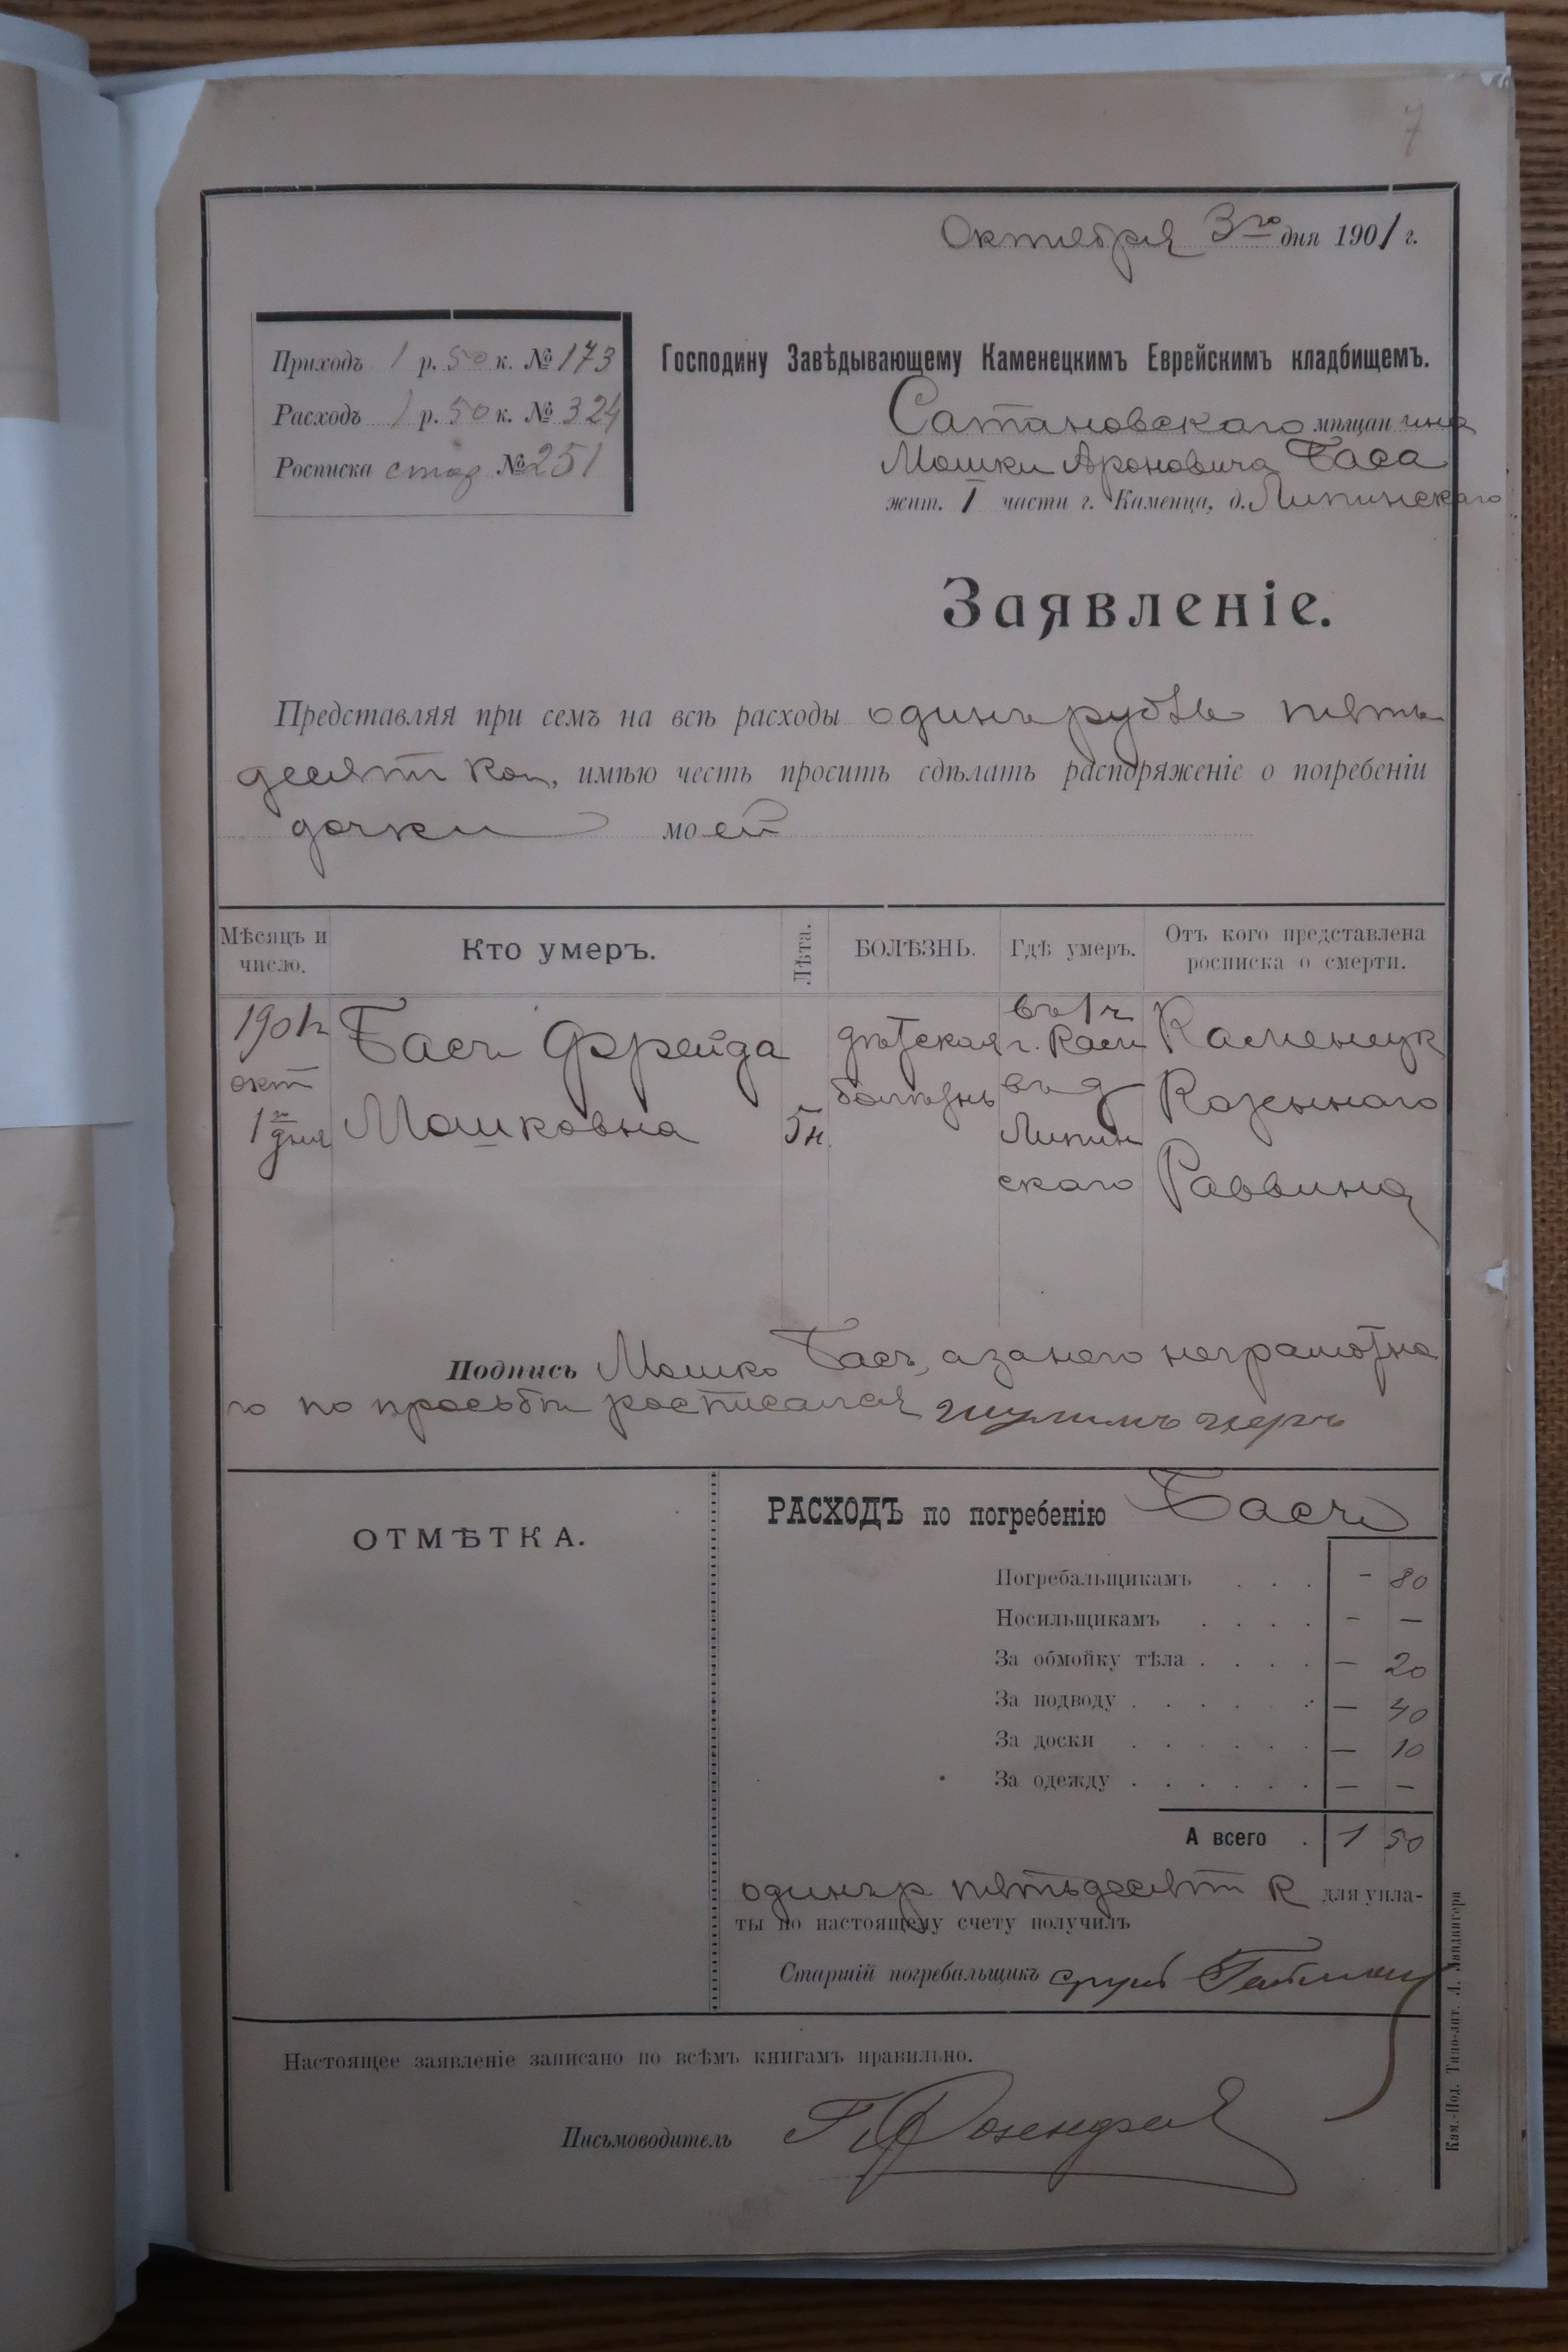 7
Октября 3го дня 1901 г.
Приходъ 1 р. 50 к. № 173
Расходъ 1 р. 50 к. № 324
Росписка № 251
Господину Завѣдывающему Каменецкимъ Еврейскимъ кладбищемъ.
Сатановскаго мѣщанина
Мошки Ароновича Баса
жит. I части г. Каменца, д. Липинскаго
Заявленіе.
Представляя при семъ на всѣ расходы одинъ рубль пять
десятъ коп, имѣю честь просить сдѣлать распоряженіе о погребеніи
дочки моей
Мѣсяцъ и число. Кто умеръ. Лѣта. БОЛѢЗНЬ. Гдѣ умеръ. Отъ кого представлена росписка о смерти.
1901 г. Басъ Фрейда дѣтская въ 1 ч г. Кам Каменецк
окт болѣзнь въ д Казеннаго
1го дня Мошковна 5 н. Липин
скаго Раввина
Подпись Мошко Басъ, а за него неграмотна
го по просьбѣ росписался
ОТМѢТКА.
РАСХОДЪ по погребенію Басъ
Погребальщикамъ . . . - 80
Носильщикамъ . . . . - -
За обмойку тѣла . . . . - 20
За подводу . . . . . - 40
За доски . . . . . - 10
За одежду . . . . . . - -
А всего . 1 50
одинъ р пятьдесятъ к для упла-
ты по настоящему счету получилъ
Старшій погребальщикъ
Настоящее заявленіе записано по всѣмъ книгамъ правильно.
Письмоводитель Г Розенфел
Кам.-Под. Типо-лит. Л. Ландвигера